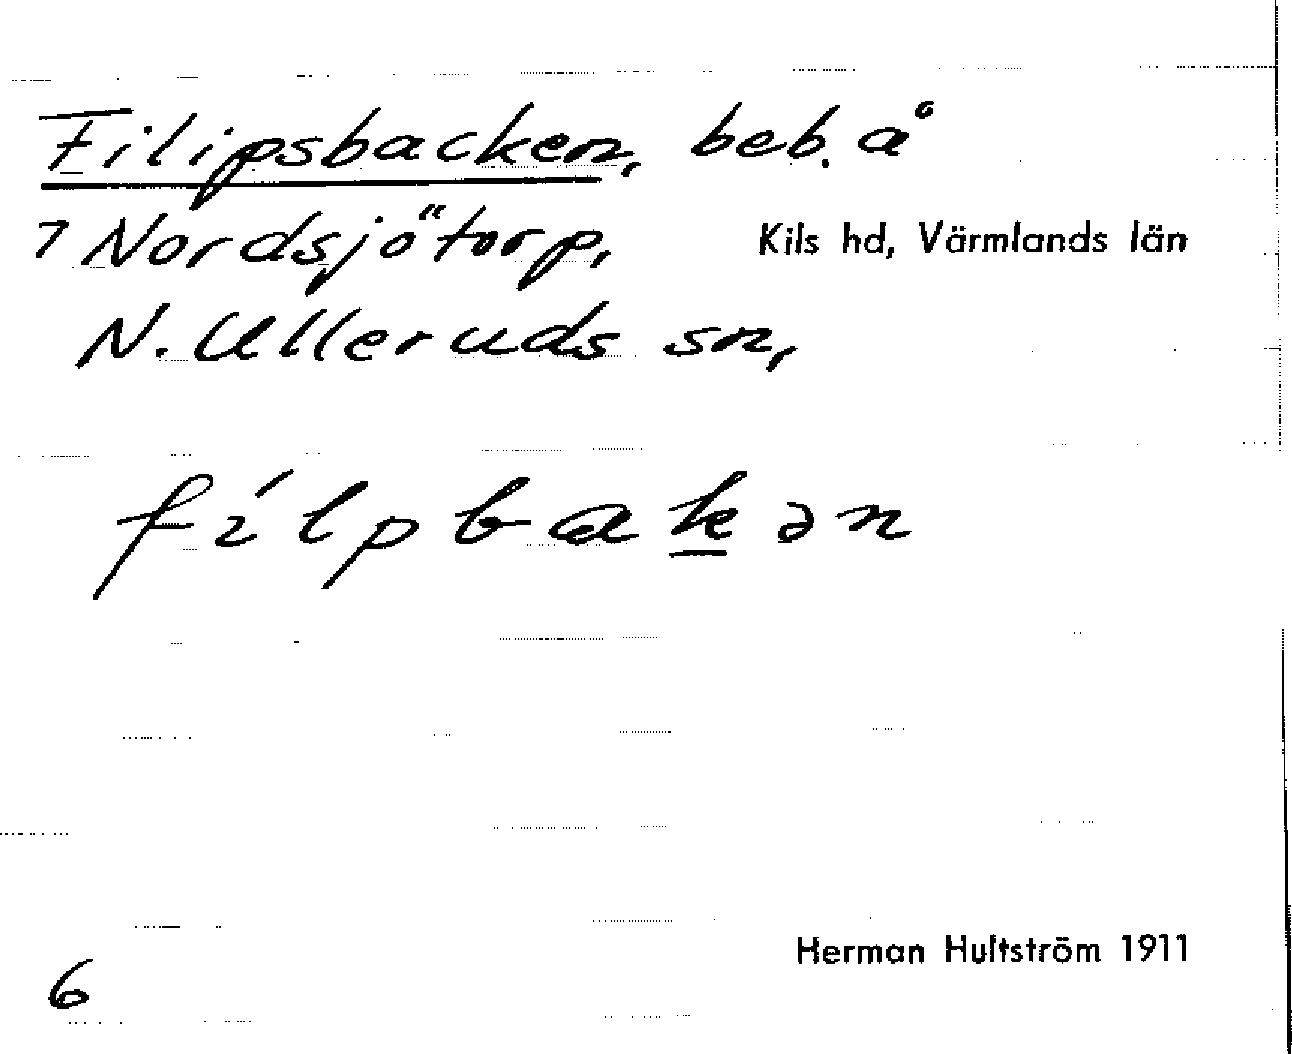 Filipsbacken, beb. å
7 Nordsjötorp, Kils hd, Värmlands län
N. Ulleruds sn,
fílpbakən
Herman Hultström 1911
6